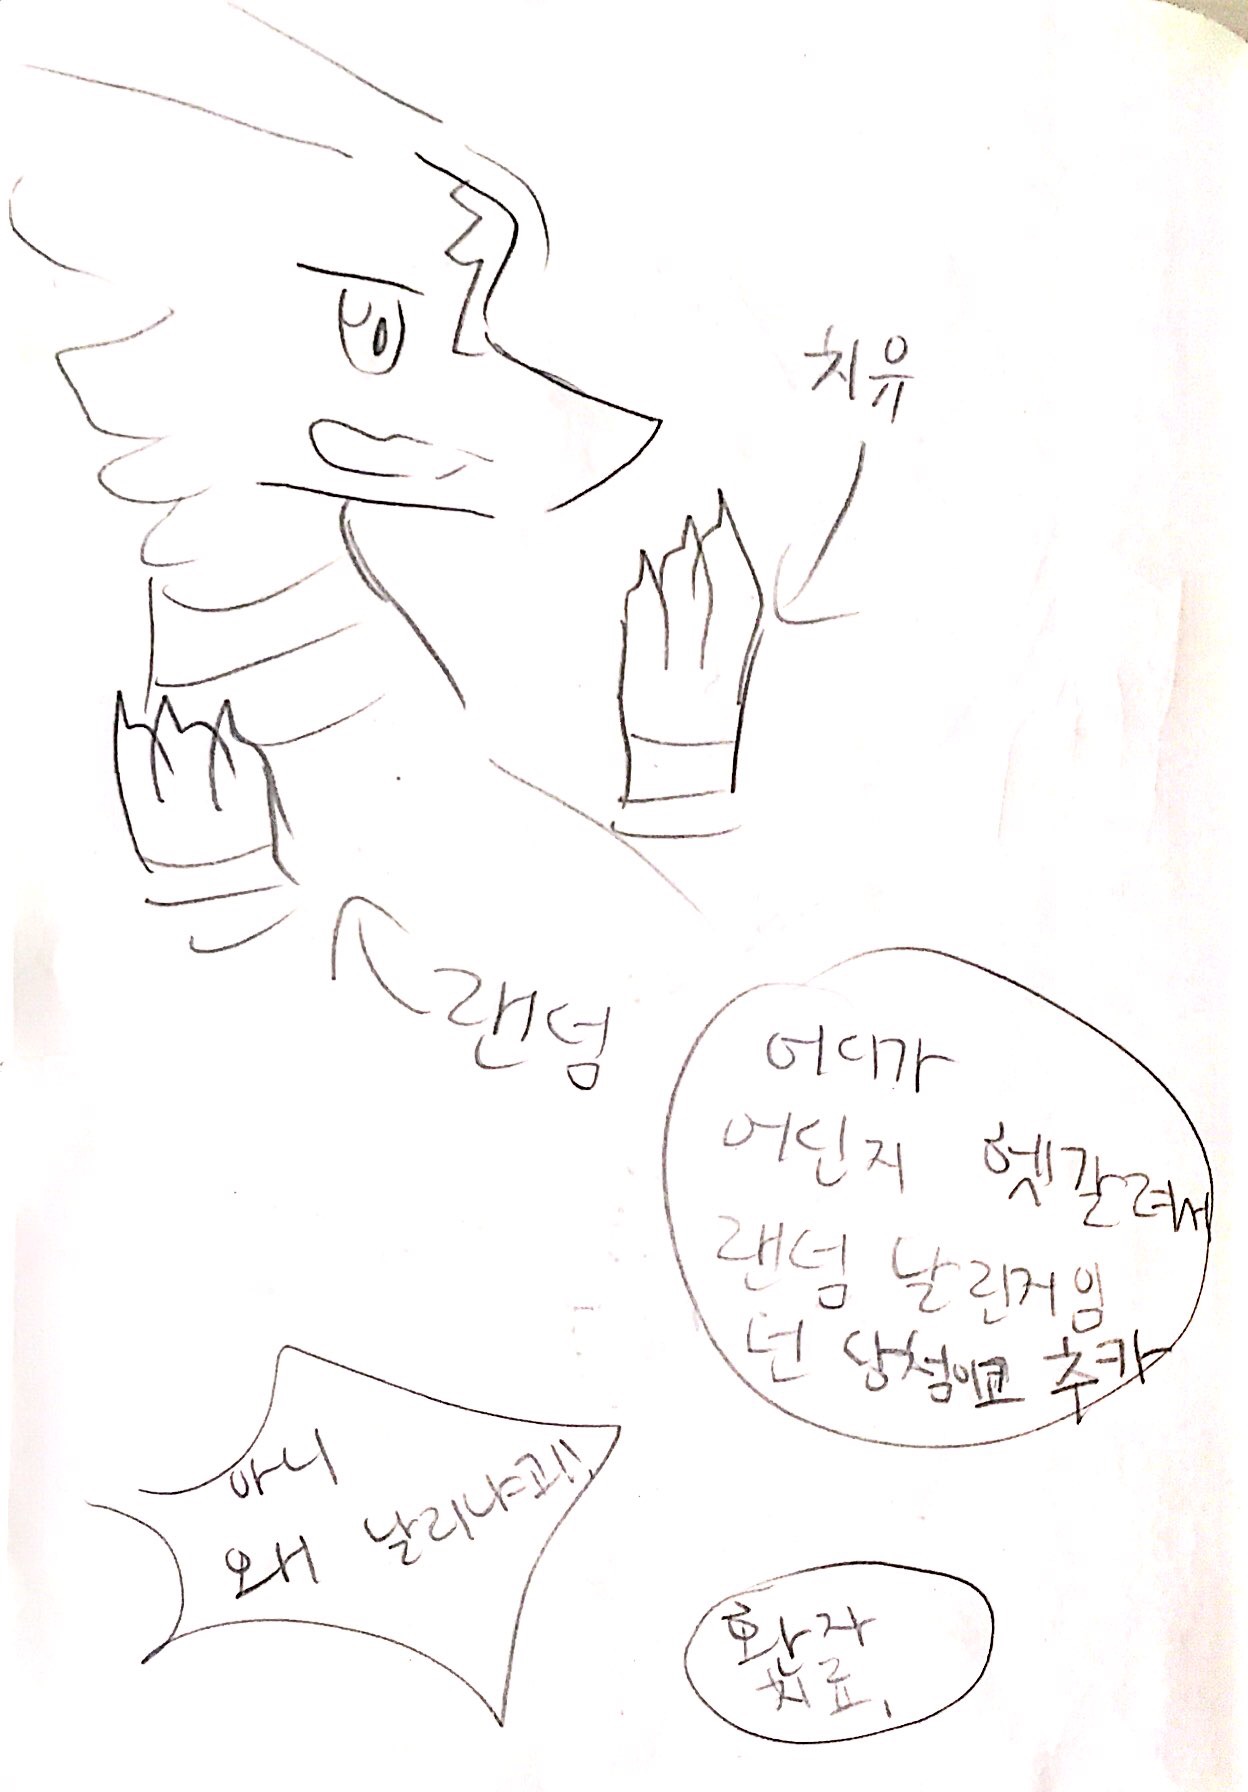 치유
랜덤
어디가
어딘지 헷갈려서
랜덤 날린거임
넌 당첨이고 추카
아니
왜 날리냐고!!
환자
치료,